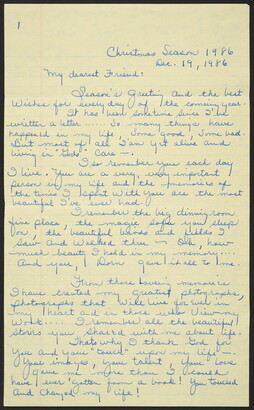 1
Christmas Season 1986
Dec. 19, 1986
My dearest Friend:
Season's Greeting and the best
Wishes for every day of the comeing year.
It has been sometime since I've
written a letter..... So many things have
happend in my life, Some good, Some bad.
But most of all I am yet alive and
living in "Gods" Care —.
I so remember you each day
I live. You are a very, very important
person in my life and the memories of
the times I spent with you are the most
beautiful I've ever had.
I remember the big dinning room
fire place, the magic sofa you sleep
for, the beautiful woods and fields I
Saw and Walked thru — Oh, how
much beauty I hold in my memory....
And you, Dorn gave it all to me.
From those loveing memories
I have created my greatest photographs,
photographs that Will live for ever in
my heart and in those who View my
Work..... I remember all the beautiful
Storys you Shared with me about life.
Thats why I thank God for
You and your "touch" upon my life.
Your images, your talent, your love
gave me more than I could
have ever gotten from a book! You touched
And changed my life!